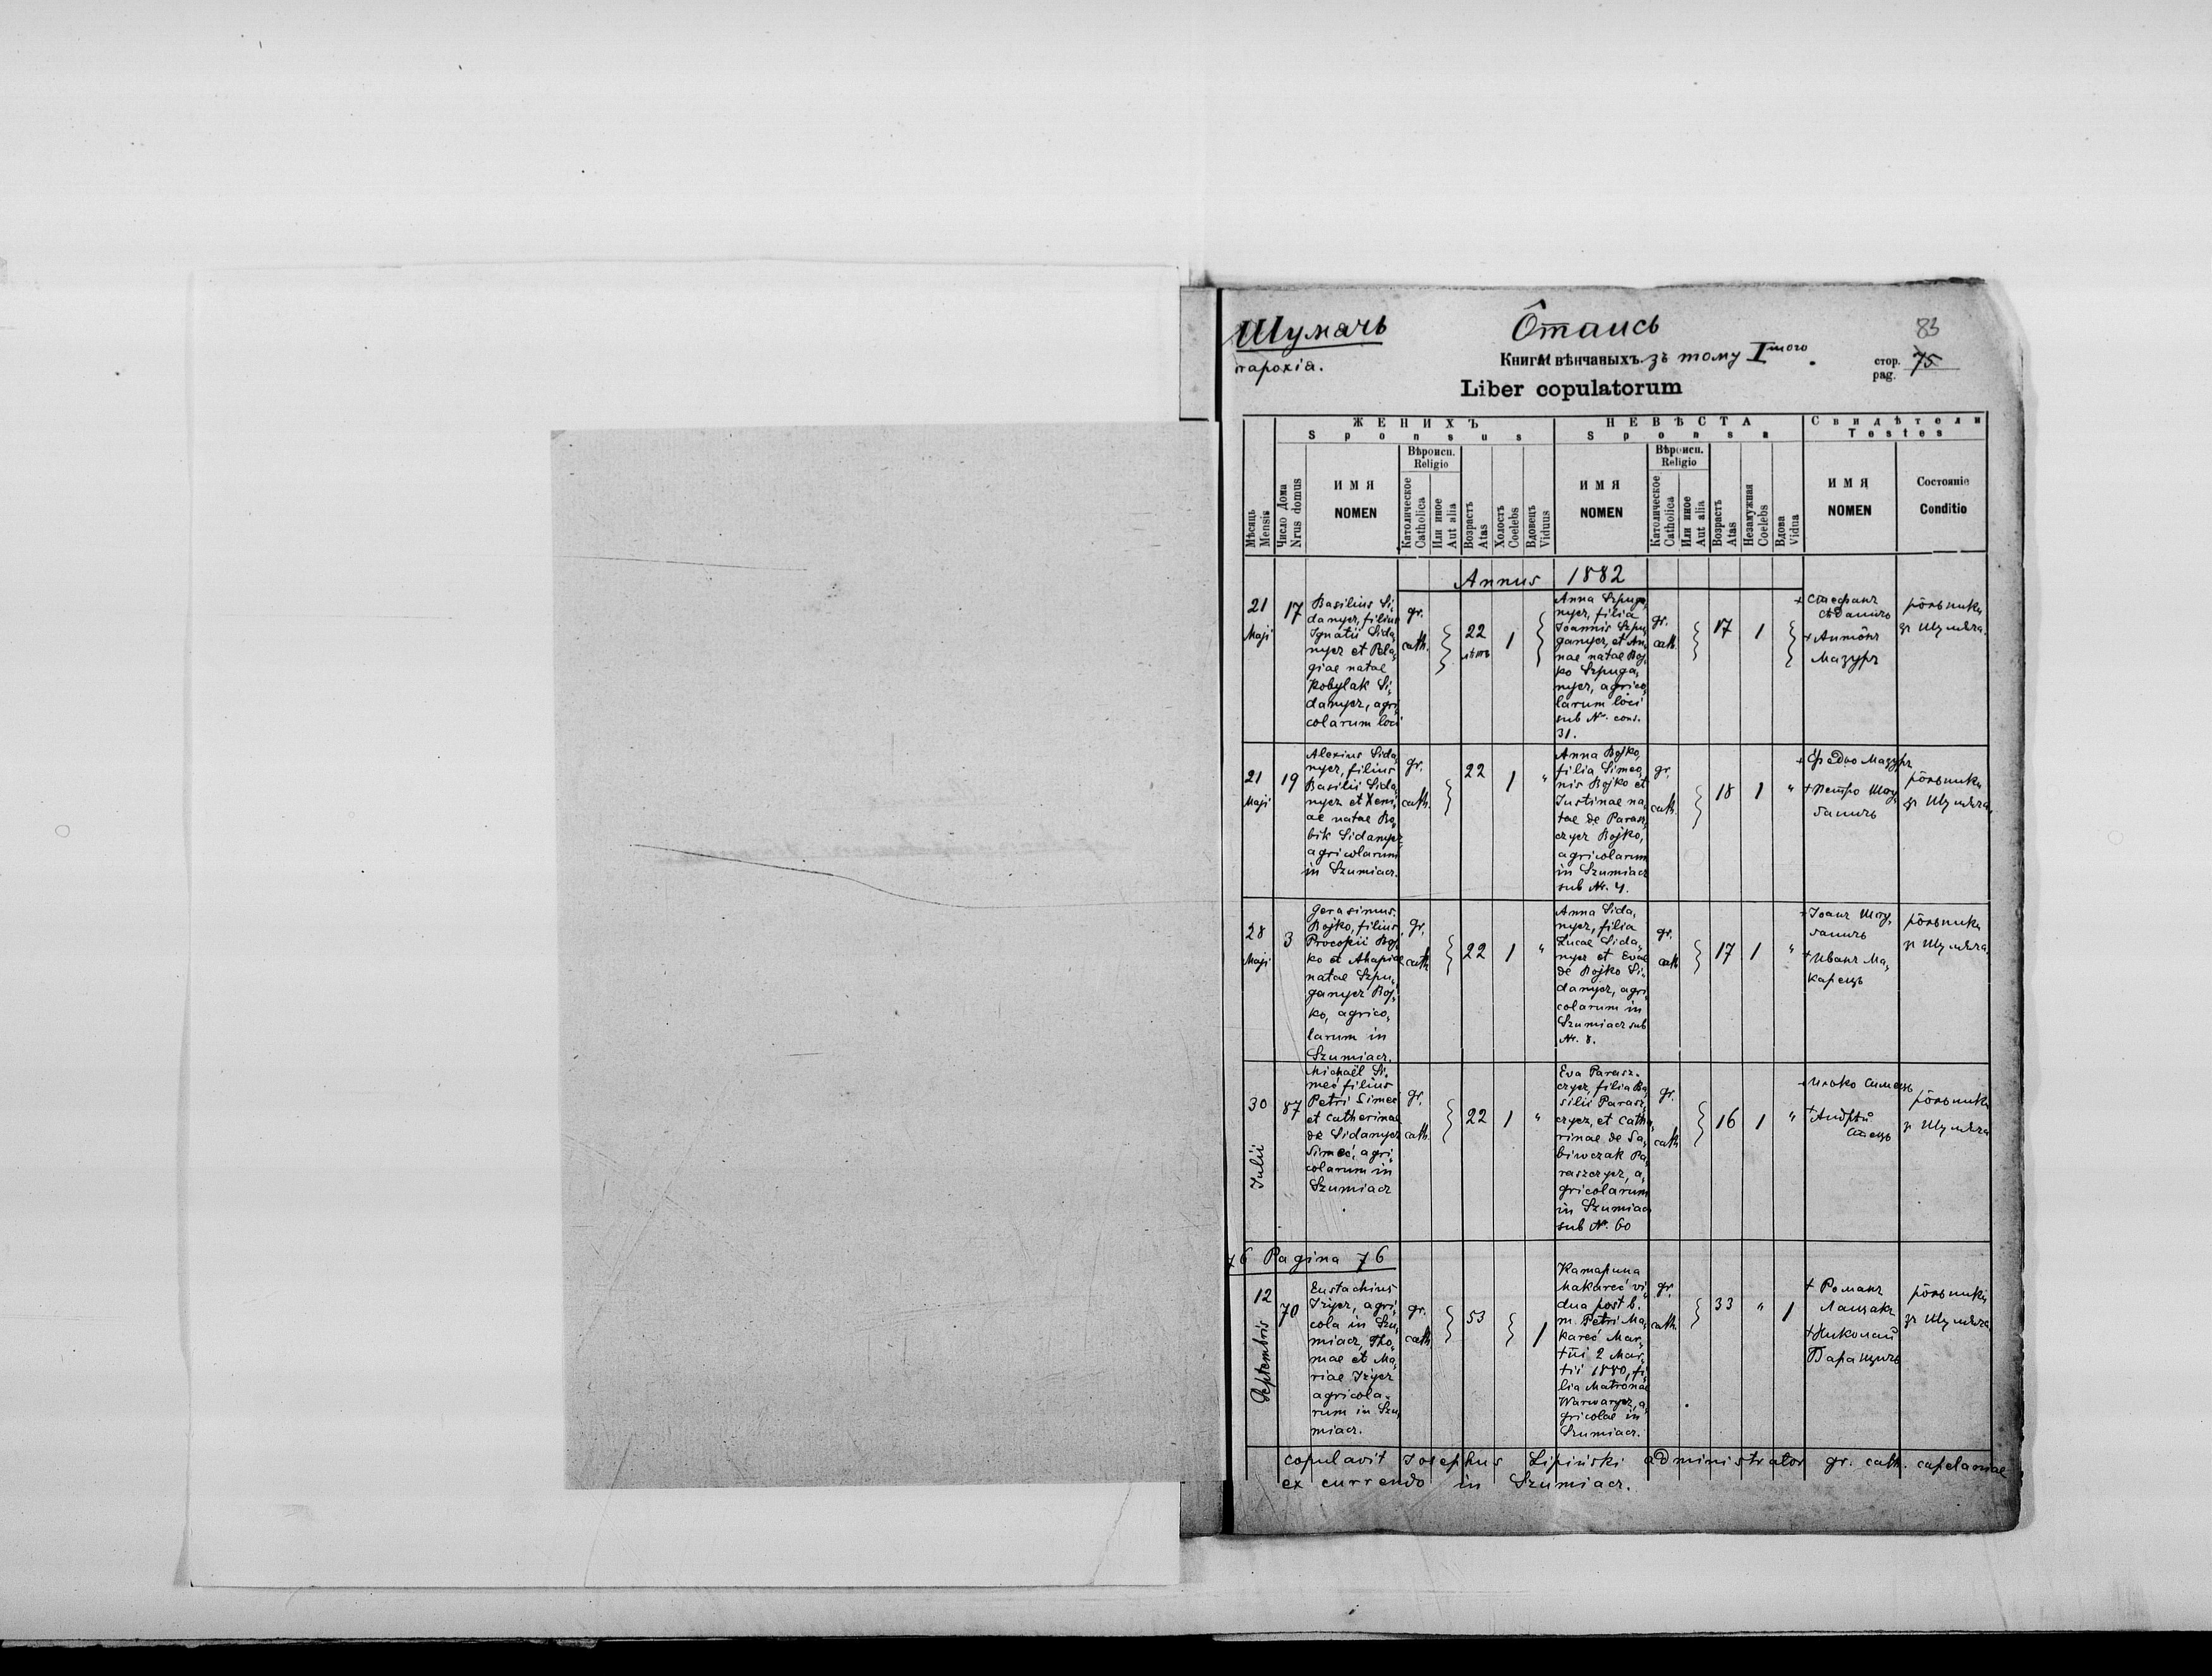 Шумячъ
парохія.
Ôтпись
Книги вѣнчаныхъ зъ тому Iшого.
Liber copulatorum
83
стор. pag. 75
ЖЕНИХЪ
Sponsus
НЕВѢСТА
Sponsa
Свидѣтели
Testes
Мѣсяць Mensis
Число Дома Nrus domus
ИМЯ
NOMEN
Вѣроисп.
Religio
Католическое Catholica
Или иное Aut alia
Возрастъ Atas
Холостъ Coelebs
Вдовецъ Viduus
ИМЯ
NOMEN
Вѣроисп.
Religio
Католическое Catholica
Или иное Aut alia
Возрастъ Atas
Незамужная Coelebs
Вдова Vidua
ИМЯ
NOMEN
Состояніе
Conditio
Annus 1882
21
Maji
17
Basilius Si,
danycz, filius
Ignatii Sida,
nycz et Pela,
giae natae
Kobylak Si,
danycz, agri
colarum loci
gr.
cath.
22
лѣтъ
1
Anna Szpuga,
nycz, filia
Joannis Szpu,
ganycz, et An,
nae natae Boj,
ko Szpuga,
nycz, agrico,
larum loci
sub Nr. cons.
31.
gr.
cath.
17
1
+ Стефанъ
Сѣданичъ
+ Антôнъ
Мазуръ
рôльники
зъ Шумяча.
21
Maji
19
Alexius Sida,
nycz, filius
Basilii Sida,
nycz et Xeni,
ae natae Bo,
bik Sidanycz
agricolarum
in Szumiacz.
gr.
cath.
22
1
"
Anna Bojko,
filia Simeo,
nis Bojko et
Justinae na,
tae de Parasz
czycz Bojko,
agricolarum
in Szumiacz
sub Nr. 4.
gr.
cath.
18
1
"
+ Федьо Мазуръ
+ Петро
ганичъ
рôльники
зъ Шумяча.
28
Maji
3
Gerasimus
Bojko, filius
Procopii Boj,
ko et Ahapiae
natae Szpu,
ganycz Boj,
ko, agrico,
larum in
Szumiacz.
gr.
cath
22
1
"
Anna Sida,
nycz, filia
Lucae Sida,
nycz et Evae
de Bojko Si,
danycz, agri
colarum in
Szumiacz sub
Nr. 8.
gr.
cath
17
1
"
+ Іоанъ
ганичъ
+ Иванъ Ма,
карець
рôльники
зъ Шумяча
30
Julii
87
Michaël Si,
meć filius
Petri Simeć
et Catherinae
de Sidanycz
Simeć, agri,
colarum in
Szumiacz
gr.
cath.
22
1
"
Eva Parasz-
czycz, filia Ba
silii Parasz,
czycz, et Catha,
rinae de Sa,
biwczak Pa,
raszczycz, a,
gricolarum
in Szumiacz
sub Nr. 60
gr.
cath
16
1
"
+ Илько Симець
+ Андрѣй
рôльники
зъ Шумяча
76 Pagina 76
12
Septembris
70
Eustachius
Irycz, agri,
cola in Szu,
miacz, Tho,
mae et Ma,
riae Irycz
agricola-
rum in Szu,
miacz.
gr.
cath
53
1
Катарина
Makareć vi,
dua post b.
m. Petri Ma,
kareć Mar,
tii 2 Mar,
tii 1880, fi,
lia Matronae
Warwarycz, a,
gricolae in
Szumiacz.
gr.
cath.
33
"
1
+ Романъ
Лащакъ
+ Николай
Баращичъ
рôльники
зъ Шумяча
copulavit Josephus Lipiński administrator gr. cath. capelaniae
ex currendo in Szumiacz.